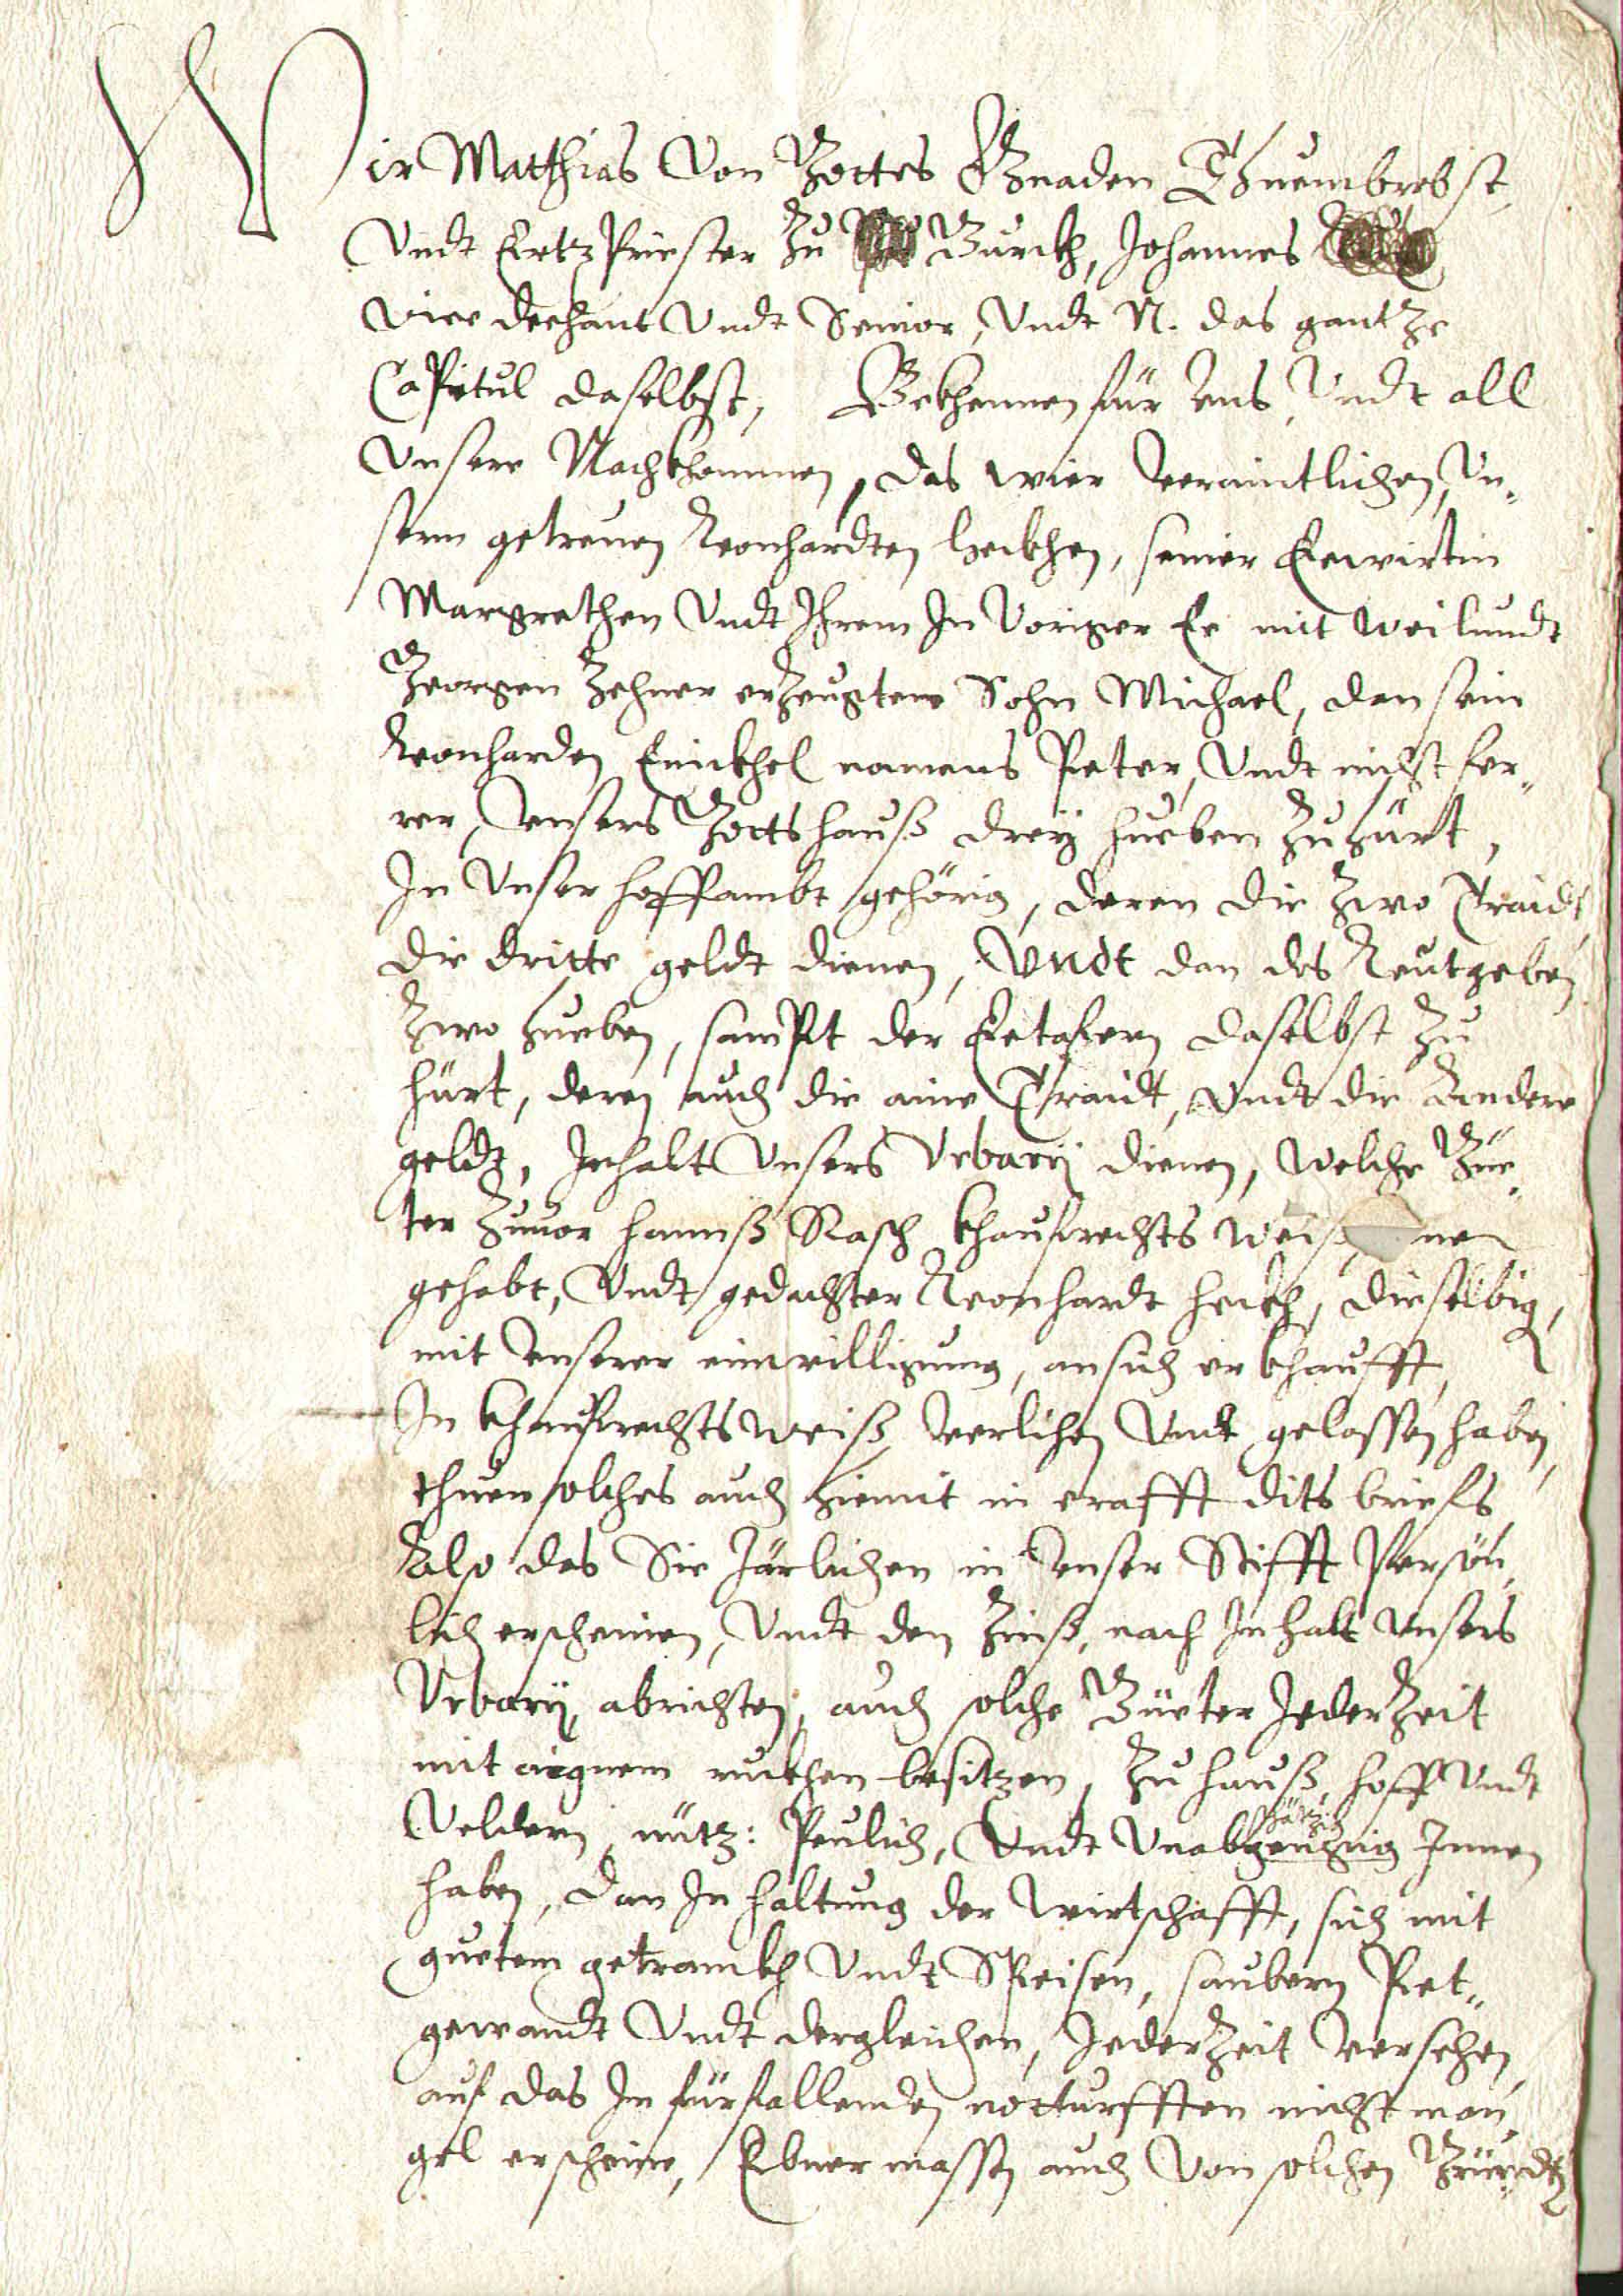 Wir Matthias Von Gottes Gnaden Thuembrobst
Vndt Ertzpriester zu Gurckh, Johannes
vice dechant Vndt Senior, Vndt N. das gantze
Capitul daselbst, Bekhennen für Vns, Vndt all
Vnsere Nachkhommen, das wier verainttlichen, Vn„
serm getreuen Leonhardten heckhen, seiner Eewirtin
Margrethen Vndt Ihrem In Voriger Ee mit Weilundt
Georgen Zehner erzeugtem Sohn Michael, dan sein
Leonharden Einickhel namens Peter, Vndt nicht fer„
rer, Vnsers Gottshauß drey hueben zu hürt,
In Vnser hoffambt gehörig, deren die zwo Traidt,
die dritte geldt dienen, Vndt dan des Leutgeben
zwo hueben, sampt der Eetafern daselbst zu
hürt, deren auch die aine Traidt, Vndt die Andere
geldt, Inhalt Vnsers Vrbarij dienen, Welche Güe„
ter zuuor hannß Rasch khaufrechts weiß, nen
gehabt, Vndt gedachter Leonhardt heckh, dieselbig,
mit Vnserer einwilligung, an sich erkhaufft,
In khaufrechts weiß, verlihen Vndt gelassen haben,
thuen solches auch hiemit in crafft dits briefs,
Also das Sie Järlichen in Vnser Stifft Persön„
lich erscheinen, Vndt den Zinß, nach Inhalt Vnsers
Vrbarij, abrichten, auch solche Güeter Jederzeit
mit aignem rukhen besitzen, zu hauß, hoff Vndt
Veldern, nütz: Peulich, Vndt Vnabgenngig Innen
haben, dan In haltung der Wirtschafft, sich mit
guetem getrankh Vndt Speisen, saubern Pet„
gewandt Vndt dergleichen, Jederzeit versehen,
auf das In fürfallenden notturfften nicht man„
gel erscheine, Ebnermassen auch Von solchen Gründten